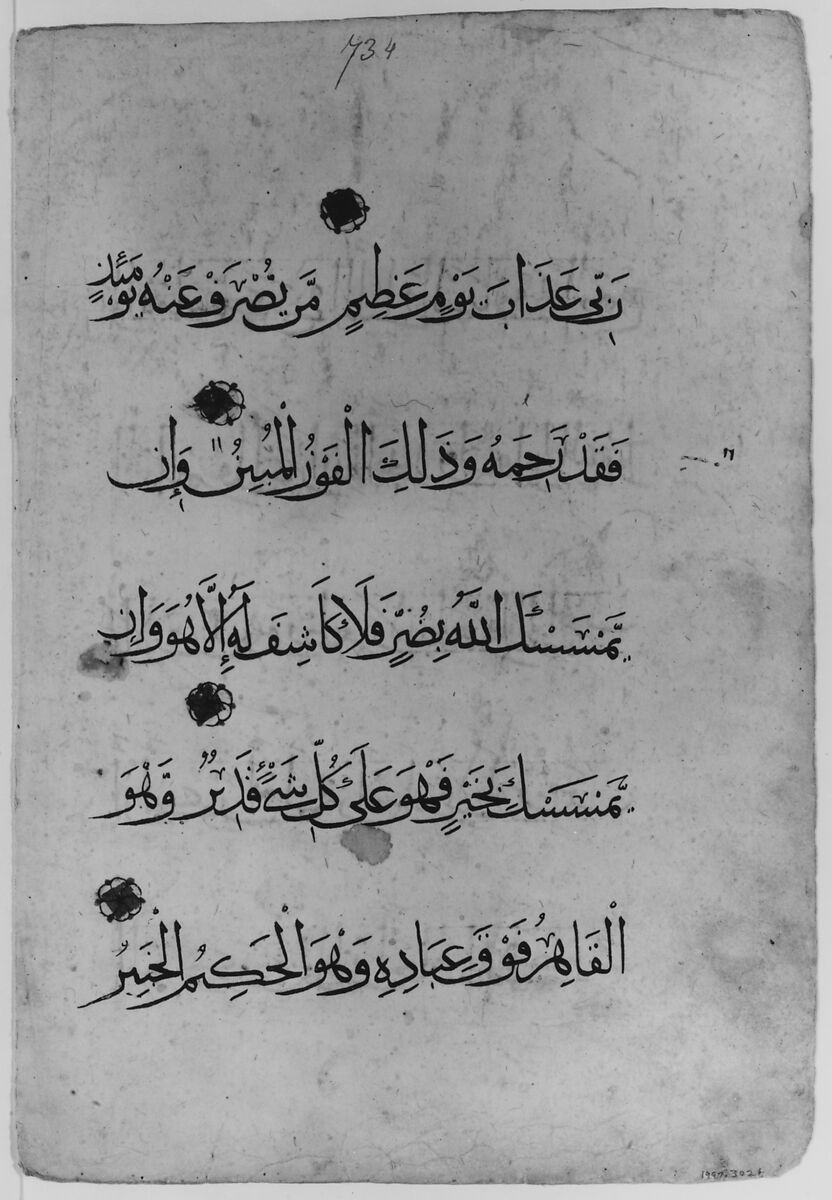 734
رَبِّى عَذَابَ يَوْمٍ عَظِيمٍ مَّن يُصْرَفْ عَنْهُ يَوْمَئِذٍ
فَقَدْ رَحِمَهُ وَذَلِكَ الْفَوْزُ الْمُبِينُ وَإِن
يَّمْسَسْكَ اللَّهُ بِضُرٍّ فَلَا كَاشِفَ لَهُ إِلَّا هُوَ وَإِن
يَّمْسَسْكَ بِخَيْرٍ فَهْوَ عَلَى كُلِّ شَىْءٍ قَدِيرٌ وَّهْوَ
الْقَاهِرُ فَوْقَ عِبَادِهِ وَهْوَ الْحَكِيمُ الْخَبِيرُ